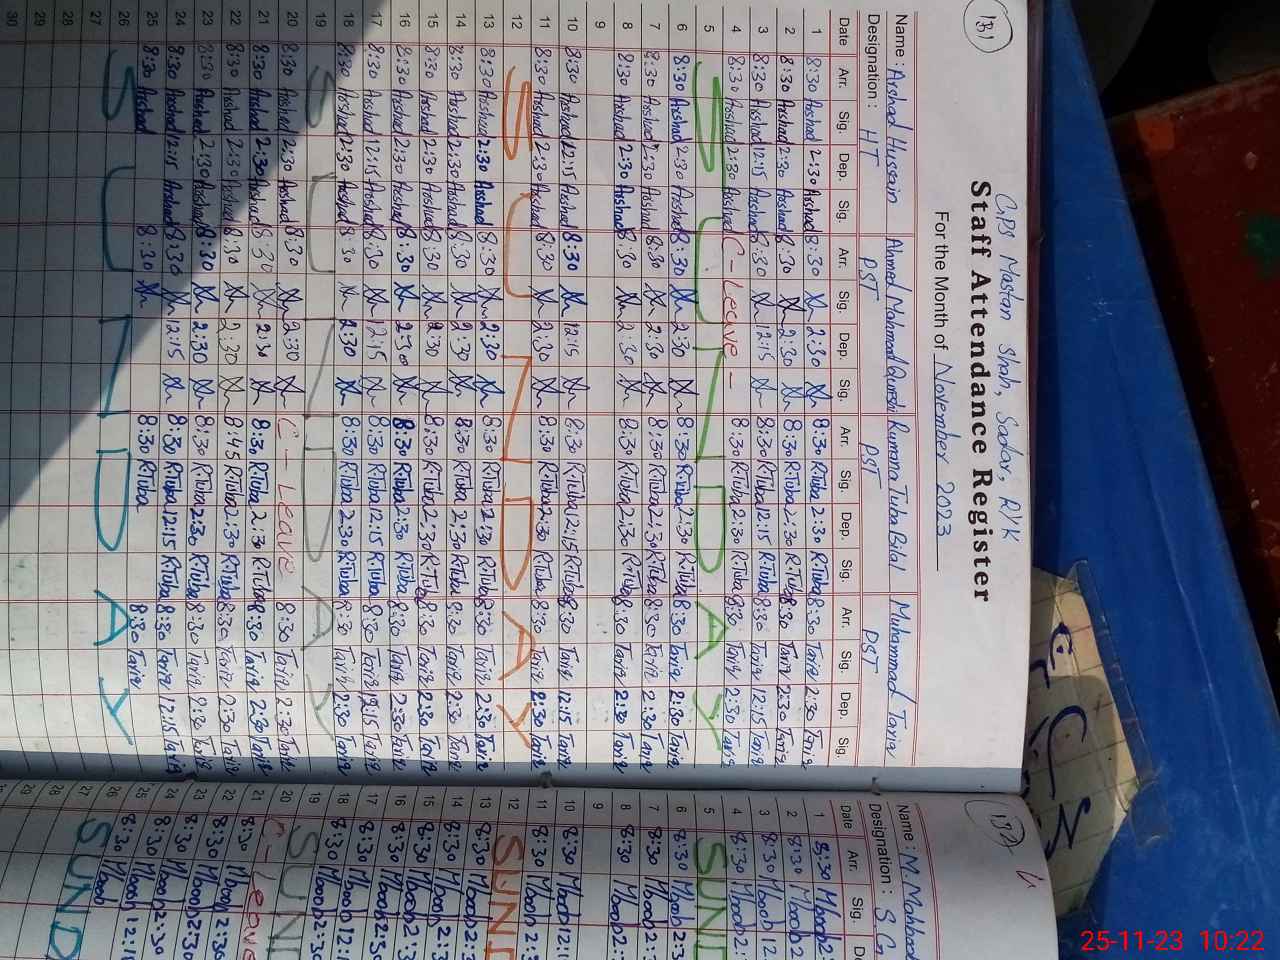 131
GPS Mastan Shah, Sadar, RYK
Staff Attendance Register
For the Month of November 2023
Name : Arshad Hussain Ahmed Mahmood Qureshi Rumana Tuba Bilal Muhammad Tariq
Designation : HT PST PST PST
Date Arr. Sig. Dep. Sig. Arr. Sig. Dep. Sig. Arr. Sig. Dep. Sig. Arr. Sig. Dep. Sig.
1 8:30 Arshad 2:30 Arshad 8:30 2:30 8:30 R.Tuba 2:30 R.Tuba 8:30 Tariq 2:30 Tariq
2 8:30 Arshad 2:30 Arshad 8:30 2:30 8:30 R.Tuba 2:30 R.Tuba 8:30 Tariq 2:30 Tariq
3 8:30 Arshad 12:15 Arshad 8:30 12:15 8:30 R.Tuba 12:15 R.Tuba 8:30 Tariq 12:15 Tariq
4 8:30 Arshad 2:30 Arshad C - Leave - 8:30 R.Tuba 2:30 R.Tuba 8:30 Tariq 2:30 Tariq
5 SUNDAY
6 8:30 Arshad 2:30 Arshad 8:30 2:30 8:30 R.Tuba 2:30 R.Tuba 8:30 Tariq 2:30 Tariq
7 8:30 Arshad 2:30 Arshad 8:30 2:30 8:30 R.Tuba 2:30 R.Tuba 8:30 Tariq 2:30 Tariq
8 8:30 Arshad 2:30 Arshad 8:30 2:30 8:30 R.Tuba 2:30 R.Tuba 8:30 Tariq 2:30 Tariq
9
10 8:30 Arshad 12:15 Arshad 8:30 12:15 8:30 R.Tuba 2:15 R.Tuba 8:30 Tariq 12:15 Tariq
11 8:30 Arshad 2:30 Arshad 8:30 2:30 8:30 R.Tuba 2:30 R.Tuba 8:30 Tariq 2:30 Tariq
12 SUNDAY
13 8:30 Arshad 2:30 Arshad 8:30 2:30 8:30 R.Tuba 2:30 R.Tuba 8:30 Tariq 2:30 Tariq
14 8:30 Arshad 2:30 Arshad 8:30 2:30 8:30 R.Tuba 2:30 R.Tuba 8:30 Tariq 2:30 Tariq
15 8:30 Arshad 2:30 Arshad 8:30 2:30 8:30 R.Tuba 2:30 R.Tuba 8:30 Tariq 2:30 Tariq
16 8:30 Arshad 2:30 Arshad 8:30 2:30 8:30 R.Tuba 2:30 R.Tuba 8:30 Tariq 2:30 Tariq
17 8:30 Arshad 12:15 Arshad 8:30 12:15 8:30 R.Tuba 12:15 R.Tuba 8:30 Tariq 12:15 Tariq
18 8:30 Arshad 2:30 Arshad 8:30 2:30 8:30 R.Tuba 2:30 R.Tuba 8:30 Tariq 2:30 Tariq
19 SUNDAY
20 8:30 Arshad 2:30 Arshad 8:30 2:30 C - Leave 8:30 Tariq 2:30 Tariq
21 8:30 Arshad 2:30 Arshad 8:30 2:30 8:30 R.Tuba 2:30 R.Tuba 8:30 Tariq 2:30 Tariq
22 8:30 Arshad 2:30 Arshad 8:30 2:30 8:45 R.Tuba 2:30 R.Tuba 8:30 Tariq 2:30 Tariq
23 8:30 Arshad 2:30 Arshad 8:30 2:30 8:30 R.Tuba 2:30 R.Tuba 8:30 Tariq 2:30 Tariq
24 8:30 Arshad 12:15 Arshad 8:30 12:15 8:30 R.Tuba 12:15 R.Tuba 8:30 Tariq 12:15 Tariq
25 8:30 Arshad 8:30 8:30 R.Tuba 8:30 Tariq
26 SUNDAY
27
28
29
30
132
Name : M. Mahboob
Designation :
Date Arr. Sig.
1 8:30
2 8:30
3 8:30
4 8:30
5 SUND
6 8:30
7 8:30
8 8:30
9
10 8:30
11 8:30
12 SUND
13 8:30
14 8:30
15 8:30
16 8:30
17 8:30
18 8:30
19 SUND
20 8:30
21 C - Leave
22 8:30
23 8:30
24 8:30
25 8:30
26 SUND
27
28
29
25-11-23 10:22